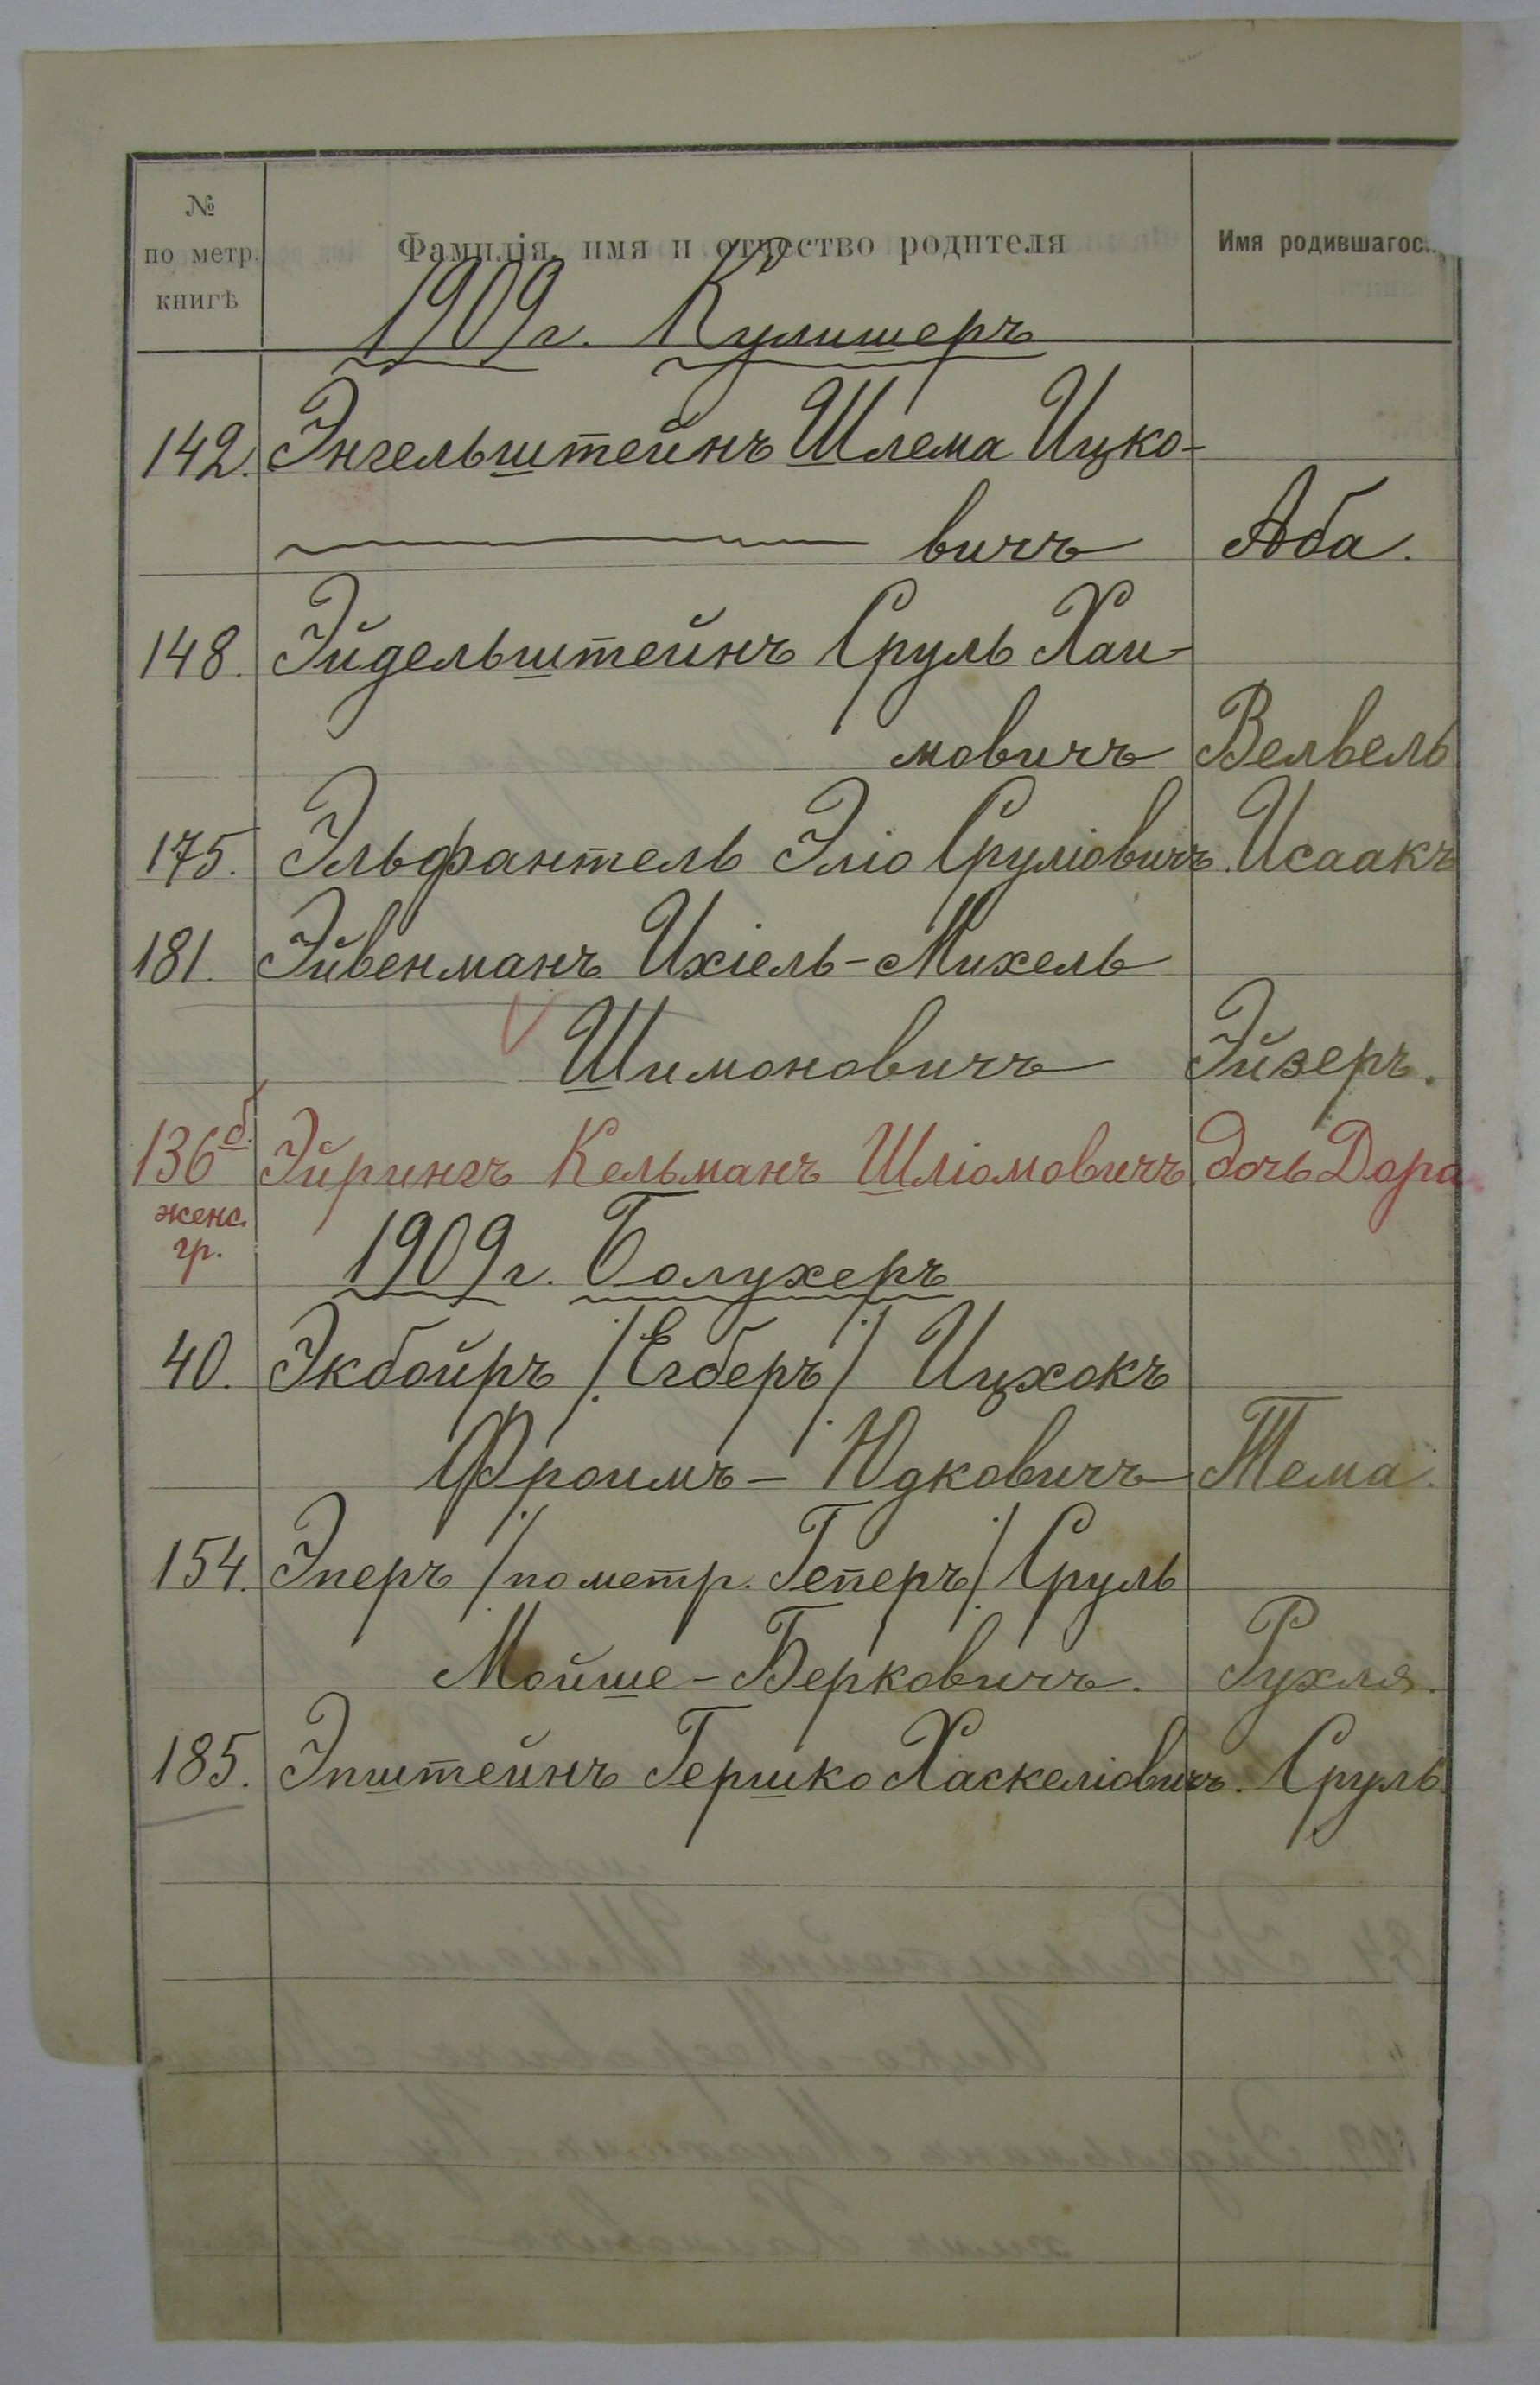 № по метр. книгѣ
Фамилія, имя и отчество родителя
Имя родившагос
1909 г. Кулишеръ
142. Энгельштейнъ Шлема Ицко-
вичъ Аба.
148. Эйдельштейнъ Сруль Хаи-
мовичъ Велвель
175. Эльфантель Эліо Сруліовичъ. Исаакъ
181. Эйвенманъ Ихіель-Михель
Шимоновичъ Эйзеръ.
136 б. Эйрингъ Кельманъ Шліомовичъ, дочь Дора
женс. гр.
1909 г. Болухеръ
40. Экбойръ /Егберъ/ Ицхокъ
Фроимъ-Юдковичъ Тема.
154. Эперъ /по метр. Геперъ/ Сруль
Мойше-Берковичъ. Рухля.
185. Эпштейнъ Гершко Хаскеліовичъ. Сруль